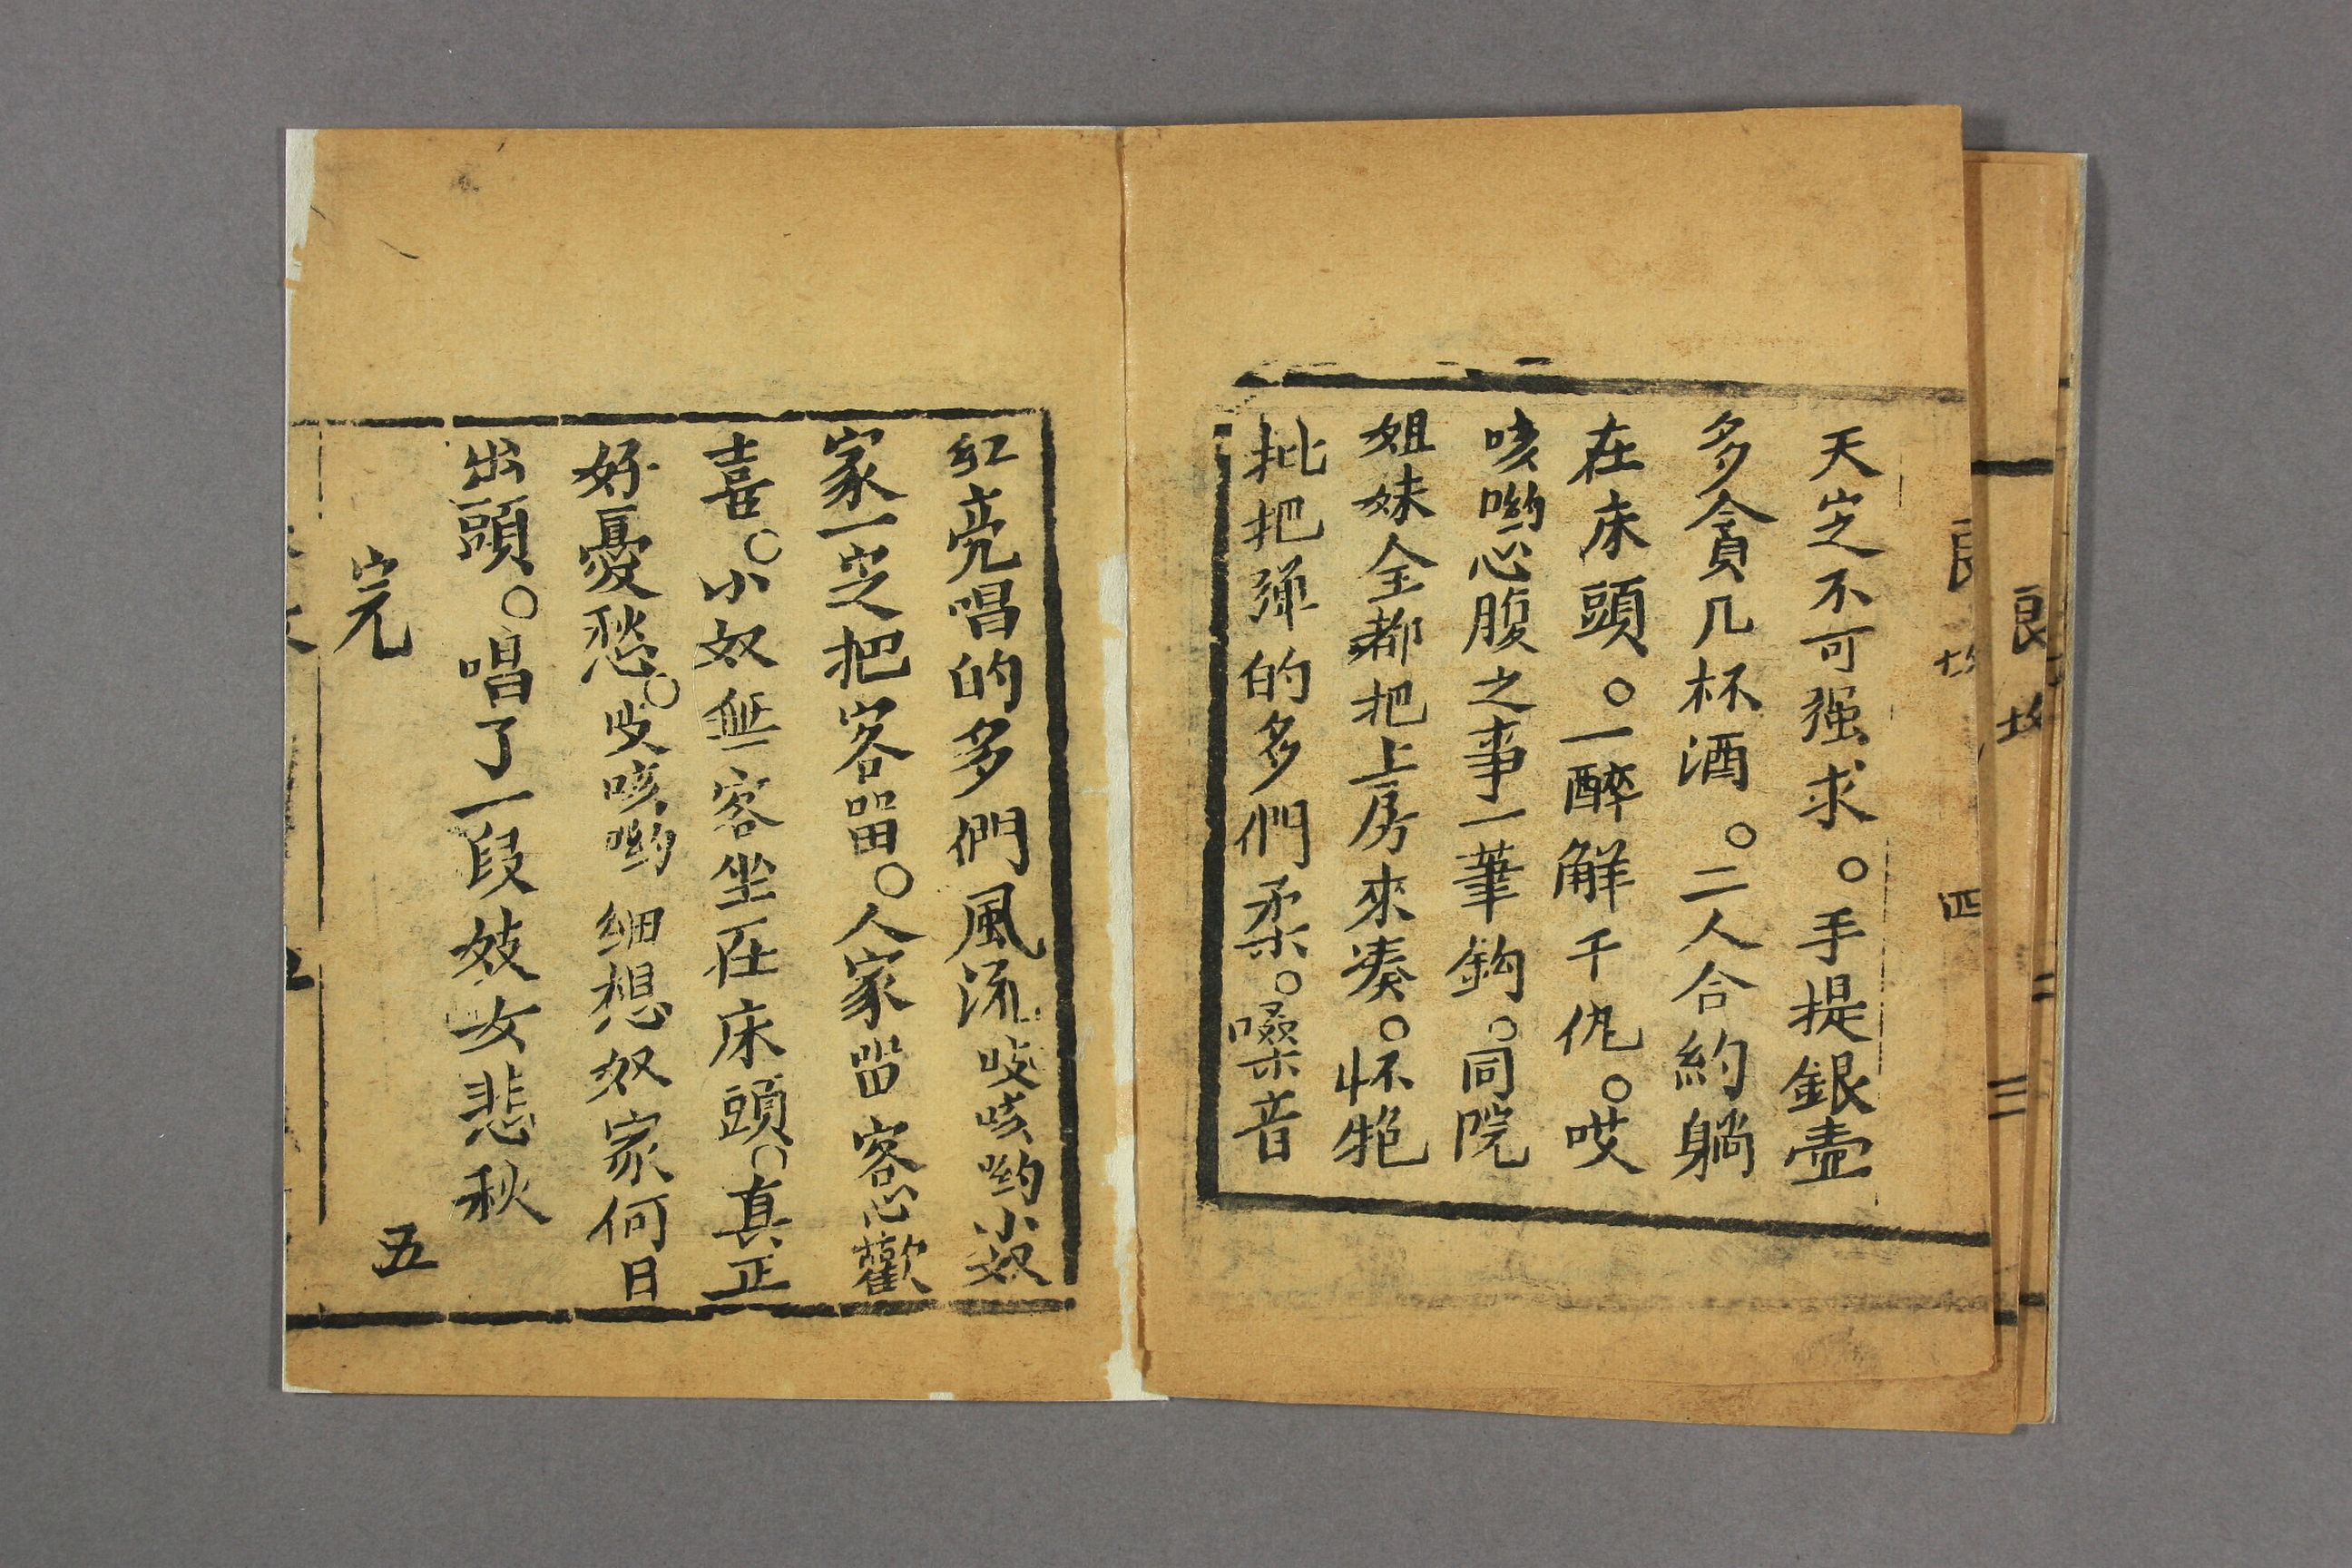 天定不可强求。手提銀壷
多貪几杯酒。二人合約躺
在床頭。一醉觧千仇。哎
咳喲心腹之事一筆鈎。同院
姐妹全都把上房來凑。怀抱
批把弹的多們柔。嗓音
四
紅亮唱的多們風流哎咳喲小奴
家一定把客留。人家畄客心歡
喜。小奴無客坐在床頭。真正
好憂愁。哎咳喲细想奴家何日
出頭。唱了一段妓女悲秋
完
五